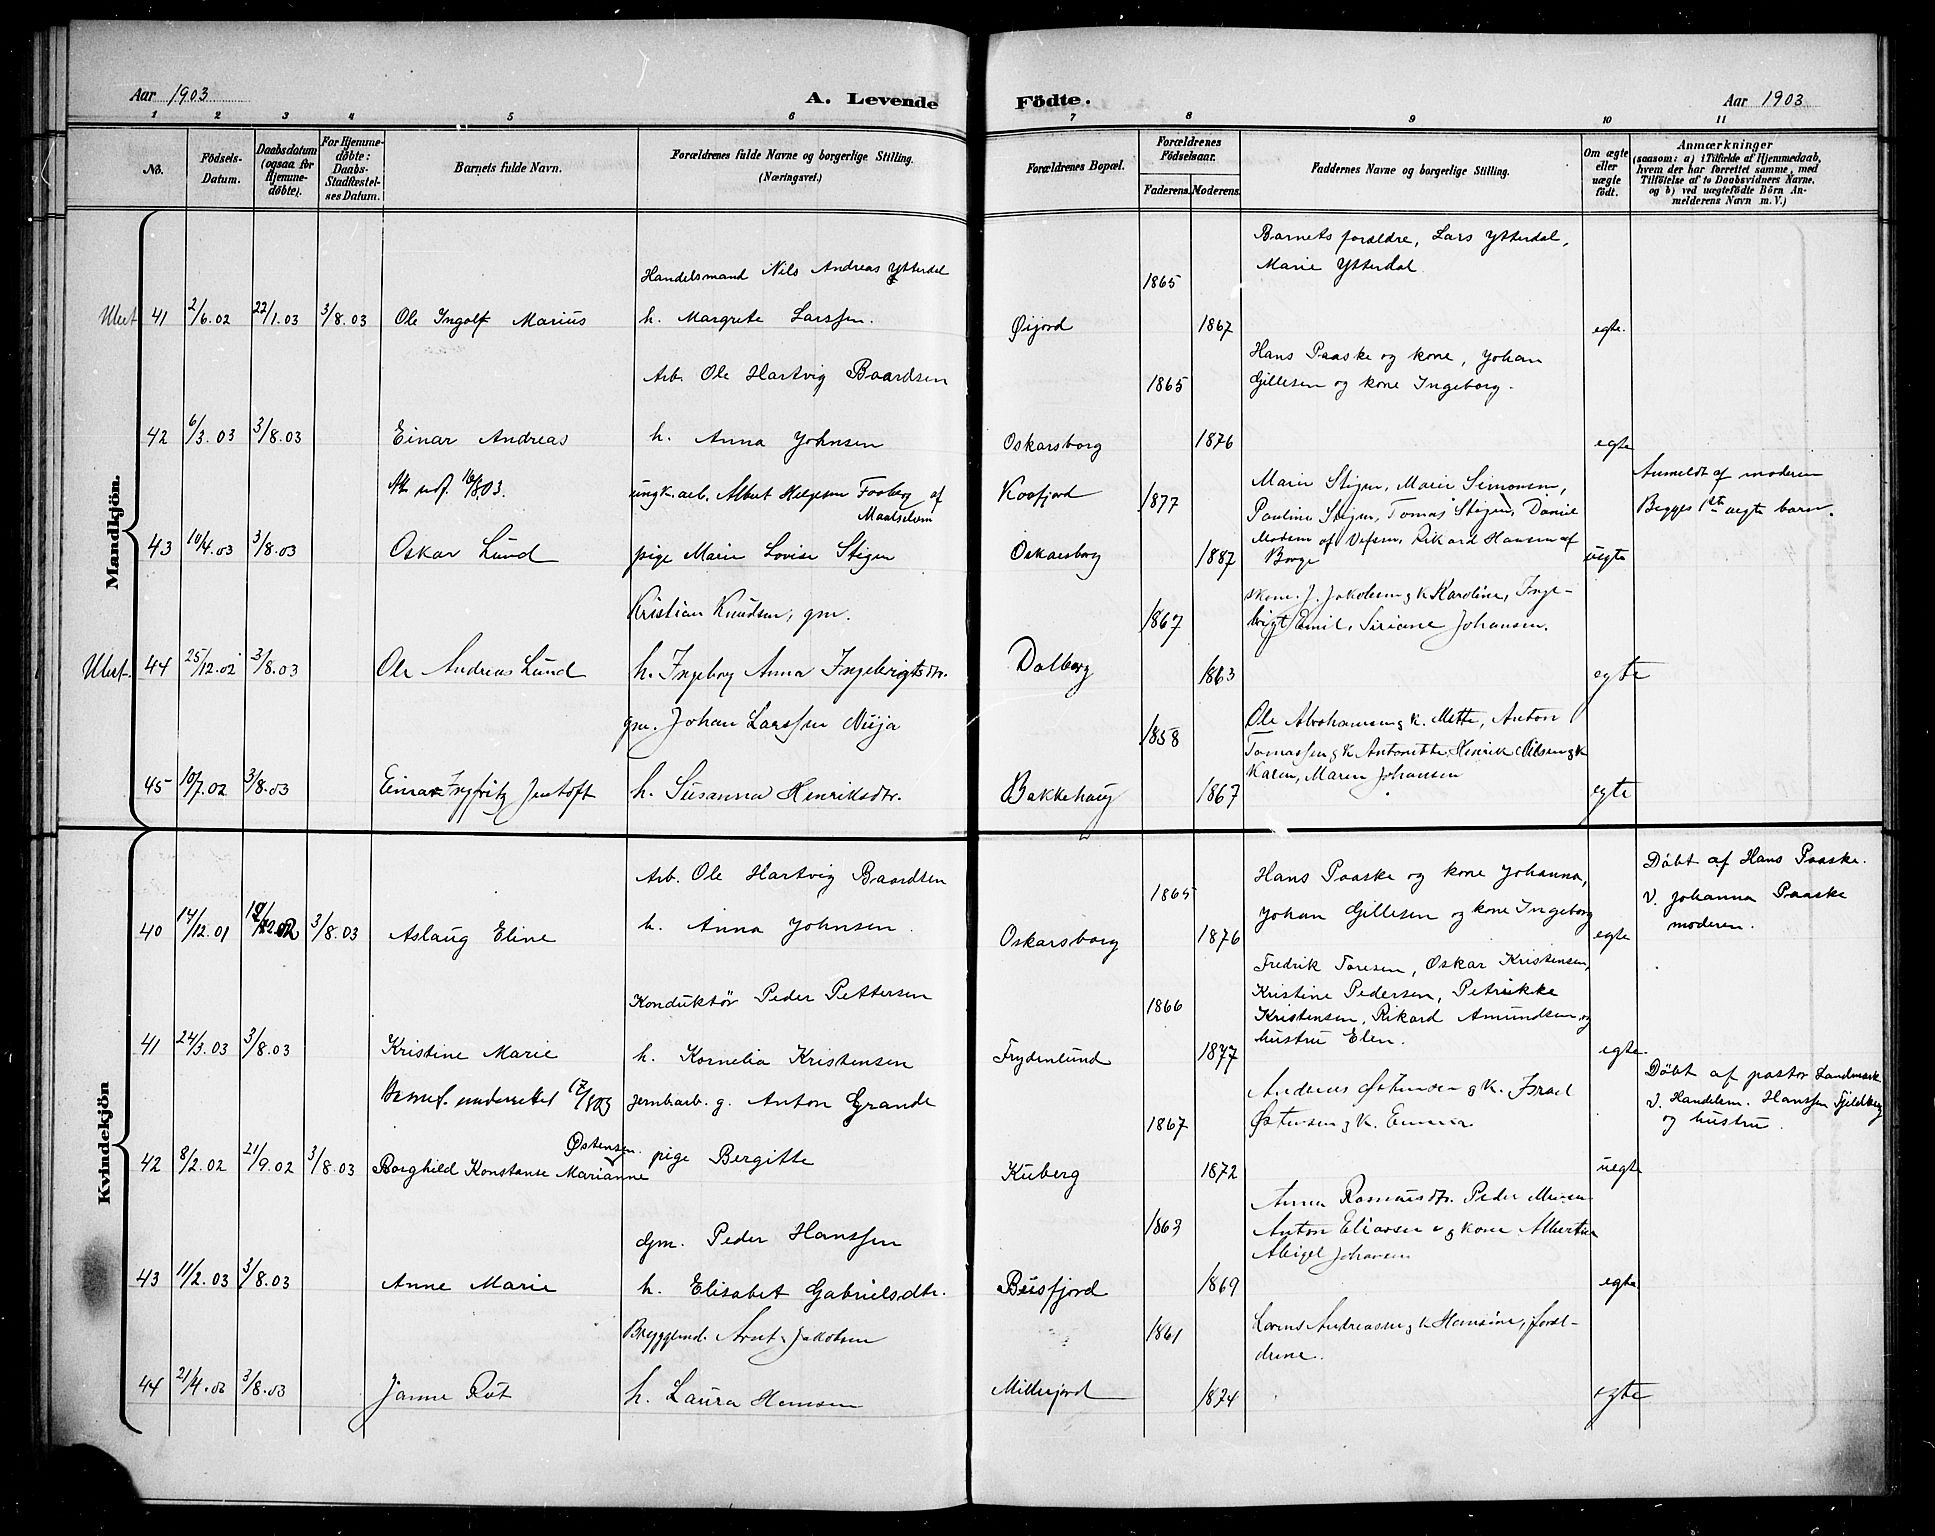 Aar 1903
A. Levende
Födte.
Aar 1903
1 2 3 4 5 6 7 8 9 10 11
No.
Födsels-Datum.
Daabsdatum (ogsaa for Hjemme-döbte).
For Hjemme-döbte: Daabs-Stadfæstel-ses Datum.
Barnets fulde Navn.
Forældrenes fulde Navne og borgerlige Stilling.
(Næringsvei.)
Forældrenes Bopæl.
Forældrenes Födselsaar.
Faderens. Moderens.
Faddernes Navne og borgerlige Stilling.
Om ægte eller uægte født.
Anmærkninger
(saasom: a) i Tilfælde af Hjemmedaab,
hvem der har forrettet samme, med
Tilföielse af to Daabsvidners Navne,
og b) ved uægtefödte Börn An-
melderens Navn m. V.)
Mandkjön.
Barnets forældre, Lars Ytterdal,
Handelsmand Nils Andreas Ytterdal 1865 Marie Ytterdal
41 2/6.02 22/1.03 3/8.03 Ole Ingolf Marius h. Margrete Larssen. Øijord 1867 egte.
Hans Paaske og kone, Johan
Arb. Ole Hartvig Baardsen 1865 Gillesen og kone Ingeborg.
42 6/3.03 3/8.03 Einar Andreas h. Anna Johnsen Oskarsborg 1876 egte
Att. udf. 16/8 03. ungk. arb. Albert Helgesen Faaberg af Maalselven Kosfjord 1877 Marie Stigen, Marie Simonsen, Anmeldt af moderen
Pauline Stigen, Tomas Stigen, Daniel Begges 1ste uegte barn.
43 10/4.03 3/8.03 Oskar Lund pige Marie Lovise Stigen Oskarsborg 1887 Madsen af Vefsen, Rikard Hansen af Borge uegte
Kristian Knudsen, gm. 1867 skone. J. Jakobsen og k Karoline, Inge-
brigt Emil, Siriane Johansen.
44 25/12.02 3/8.03 Ole Andreas Lund h. Ingeborg Anna Ingebrigtsdtr. Dalberg 1863 egte
gm. Johan Larssen Nuja 1858 Ole Abrahamsen og k. Mette, Anton
Tomassen og k Antonette, Henrik Nilsen og k
45 10/7.02 3/8.03 Einar Ingfritz Jentoft h. Susanna Henriksdtr. Bakkehaug 1867 Karen, Maren Johansen egte
Kvindekjön
Arb. Ole Hartvig Baardsen 1865 Hans Paaske og kone Johanna, Döbt af Hans Paaske.
Johan Gillesen og kone Ingeborg v. Johanna Paaske
40 14/12.01 3/8.03 Aslaug Eline h. Anna Johnsen. Oskarsborg 1876 egte moderen.
Fredrik Toresen, Oskar Kristensen,
Konduktør Peder Pettersen 1866 Kristine Pedersen, Petrikke
Kristensen, Rikard Amundsen og
41 24/3.03 3/8.03 Kristine Marie h. Kornelia Kristensen Frydenlund 1877 hustru Elen. egte.
underrettet 17/8 03 jernbarb. g. Anton Grande 1867 Andreas Østensen og k. Israel Döbt af pastor Landmark
Østensen og k. Emma v. Handelsm. Hanssen Fjeldberg
og hustru.
42 8/2.02 21/9.02 3/8.03 Borghild Konstanse Marianne pige Bergitte Østensen. Kuberg 1872 uegte
Anna Rasmusdtr. Peder
Gm. Peder Hanssen 1863 Anton Eliassen og kone Albertine
Abigel Johansen
43 11/2.03 3/8.03 Anne Marie h. Elisabet Gabrielsdtr. Beisfjord 1869 egte
Bryggemd. Arnt Jakobsen 1861 Lorens Andreassen og k Hansine, foræl-
drene.
44 21/4.03 3/8.03 Janne Rut h. Laura Hansen 1874 egte